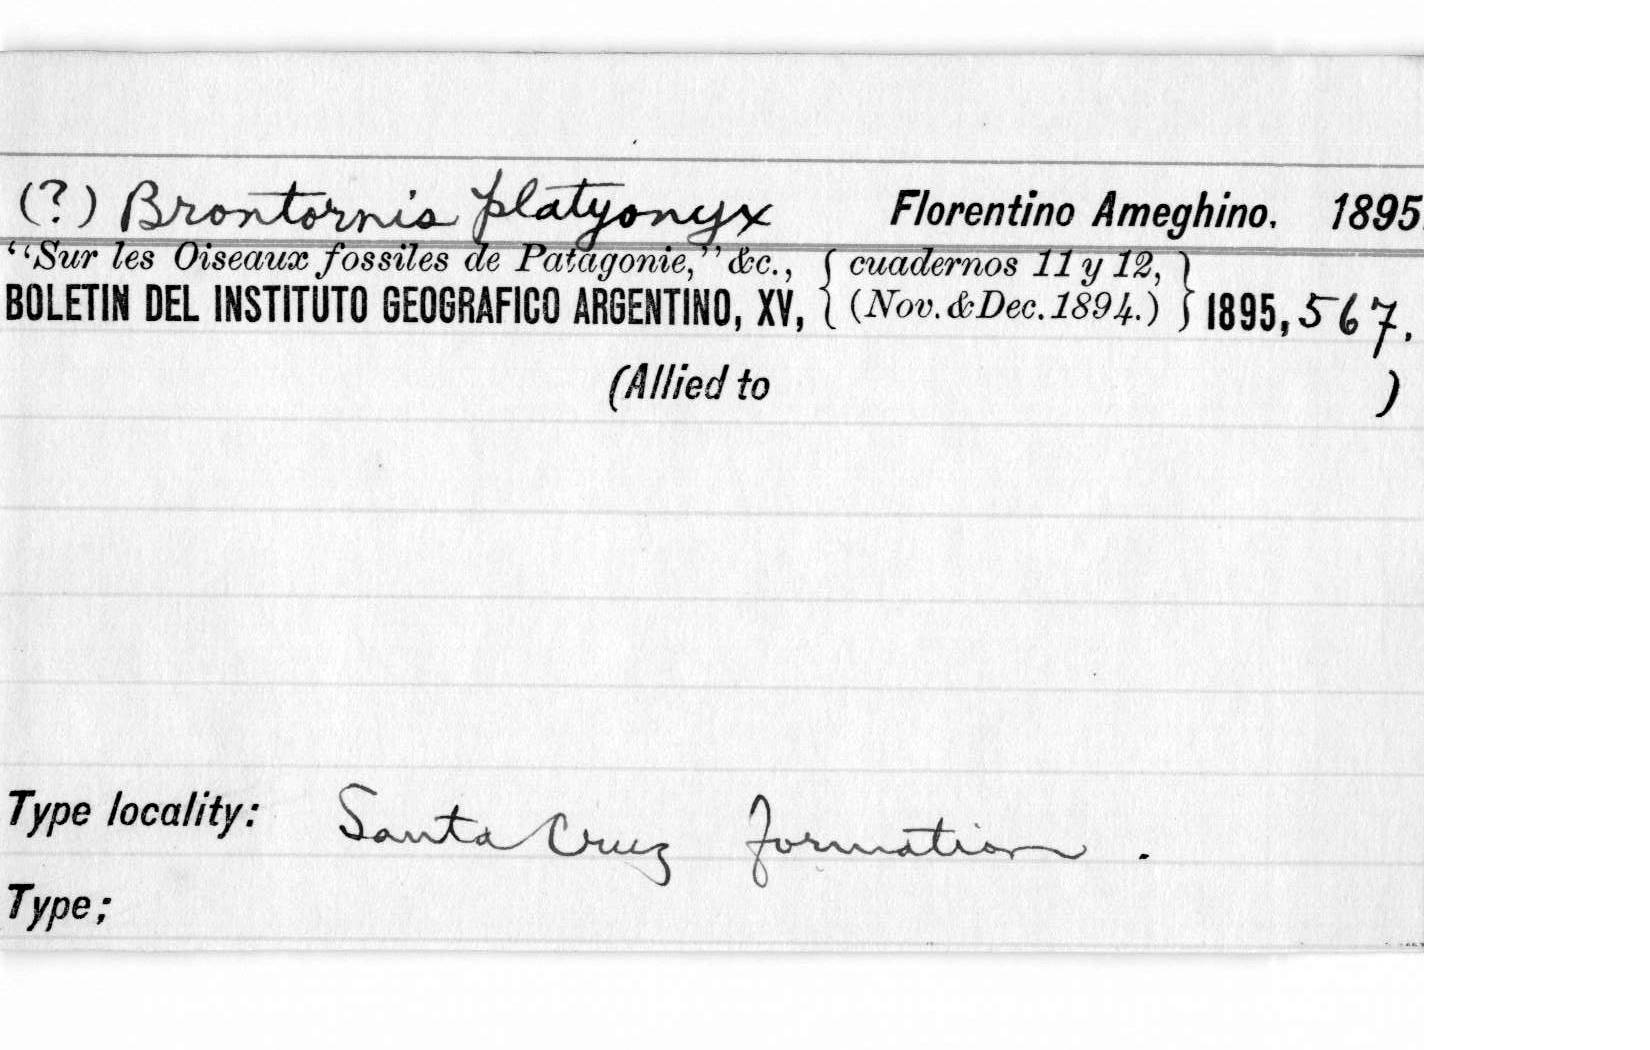 (?) Brontornis platyonyx Florentino Ameghino. 1895.
“Sur les Oiseaux fossiles de Patagonie,” &c., { cuadernos 11 y 12, }
BOLETIN DEL INSTITUTO GEOGRAFICO ARGENTINO, XV, { (Nov. & Dec. 1894.) } 1895, 567.
(Allied to )
Type locality: Santa Cruz formation.
Type;